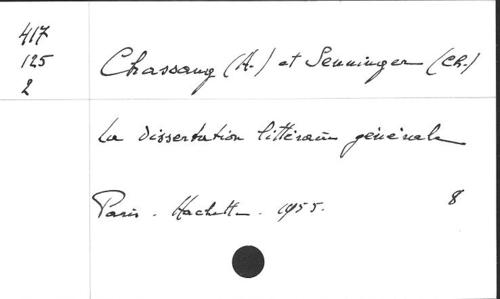 417
125
2
Chassang (A.) et Senninger (Ch.)
La dissertation littéraire générale
Paris. Hachette. 1955. 8